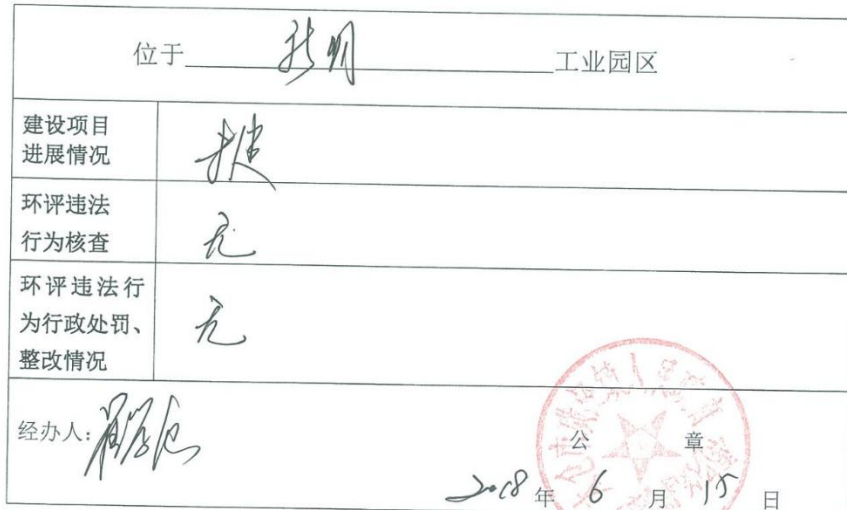 位于 新明 工业园区
建设项目
进展情况
未建
环评违法
行为核查
无
环评违法行
为行政处罚、
整改情况
无
经办人：
公 章
2018 年 6 月 15 日